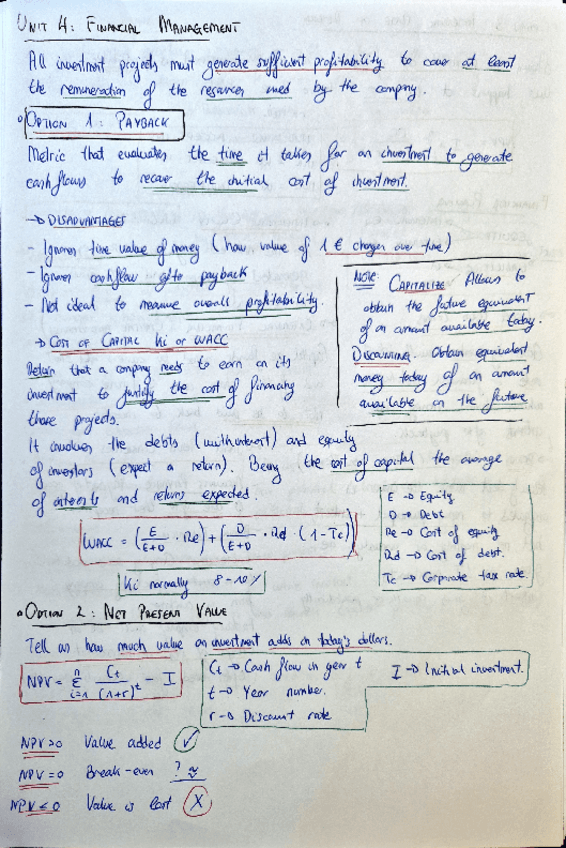 UNIT 4: FINANCIAL MANAGEMENT
All investment projects must generate sufficient profitability to cover at least
the remuneration of the resources used by the company.
OPTION 1: PAYBACK
Metric that evaluates the time it takes for an investment to generate
cashflows to recover the initial cost of investment.
→ DISADVANTAGES
- Ignores time value of money (how value of 1 € changes over time)
- Ignores cashflow after payback
- Not ideal to measure overall profitability.
NOTE: CAPITALIZE Allows to
obtain the future equivalent
of an amount available today.
DISCOUNTING. Obtain equivalent
money today of an amount
available in the future
→ COST OF CAPITAL Ki or WACC
Return that a company needs to earn on its
investment to justify the cost of financing
those projects.
It involves the debts (with interest) and equity
of investors (expect a return). Being the cost of capital the average
of interests and returns expected.
WACC = (E/E+D · Re) + (D/E+D · Rd · (1-Tc))
E → Equity
D → Debt
Re → Cost of equity
Rd → Cost of debt.
Tc → Corporate tax rate.
Ki normally 8-10%
OPTION 2: NET PRESENT VALUE
Tell us how much value an investment adds in today's dollars.
NPV = Σ n i=1 Ct/(1+r)^t - I
Ct → Cash flow in year t
t → Year number.
r → Discount rate
I → Initial investment.
NPV>0 Value added ✓
NPV=0 Break-even ? ≈
NPV<0 Value is lost X